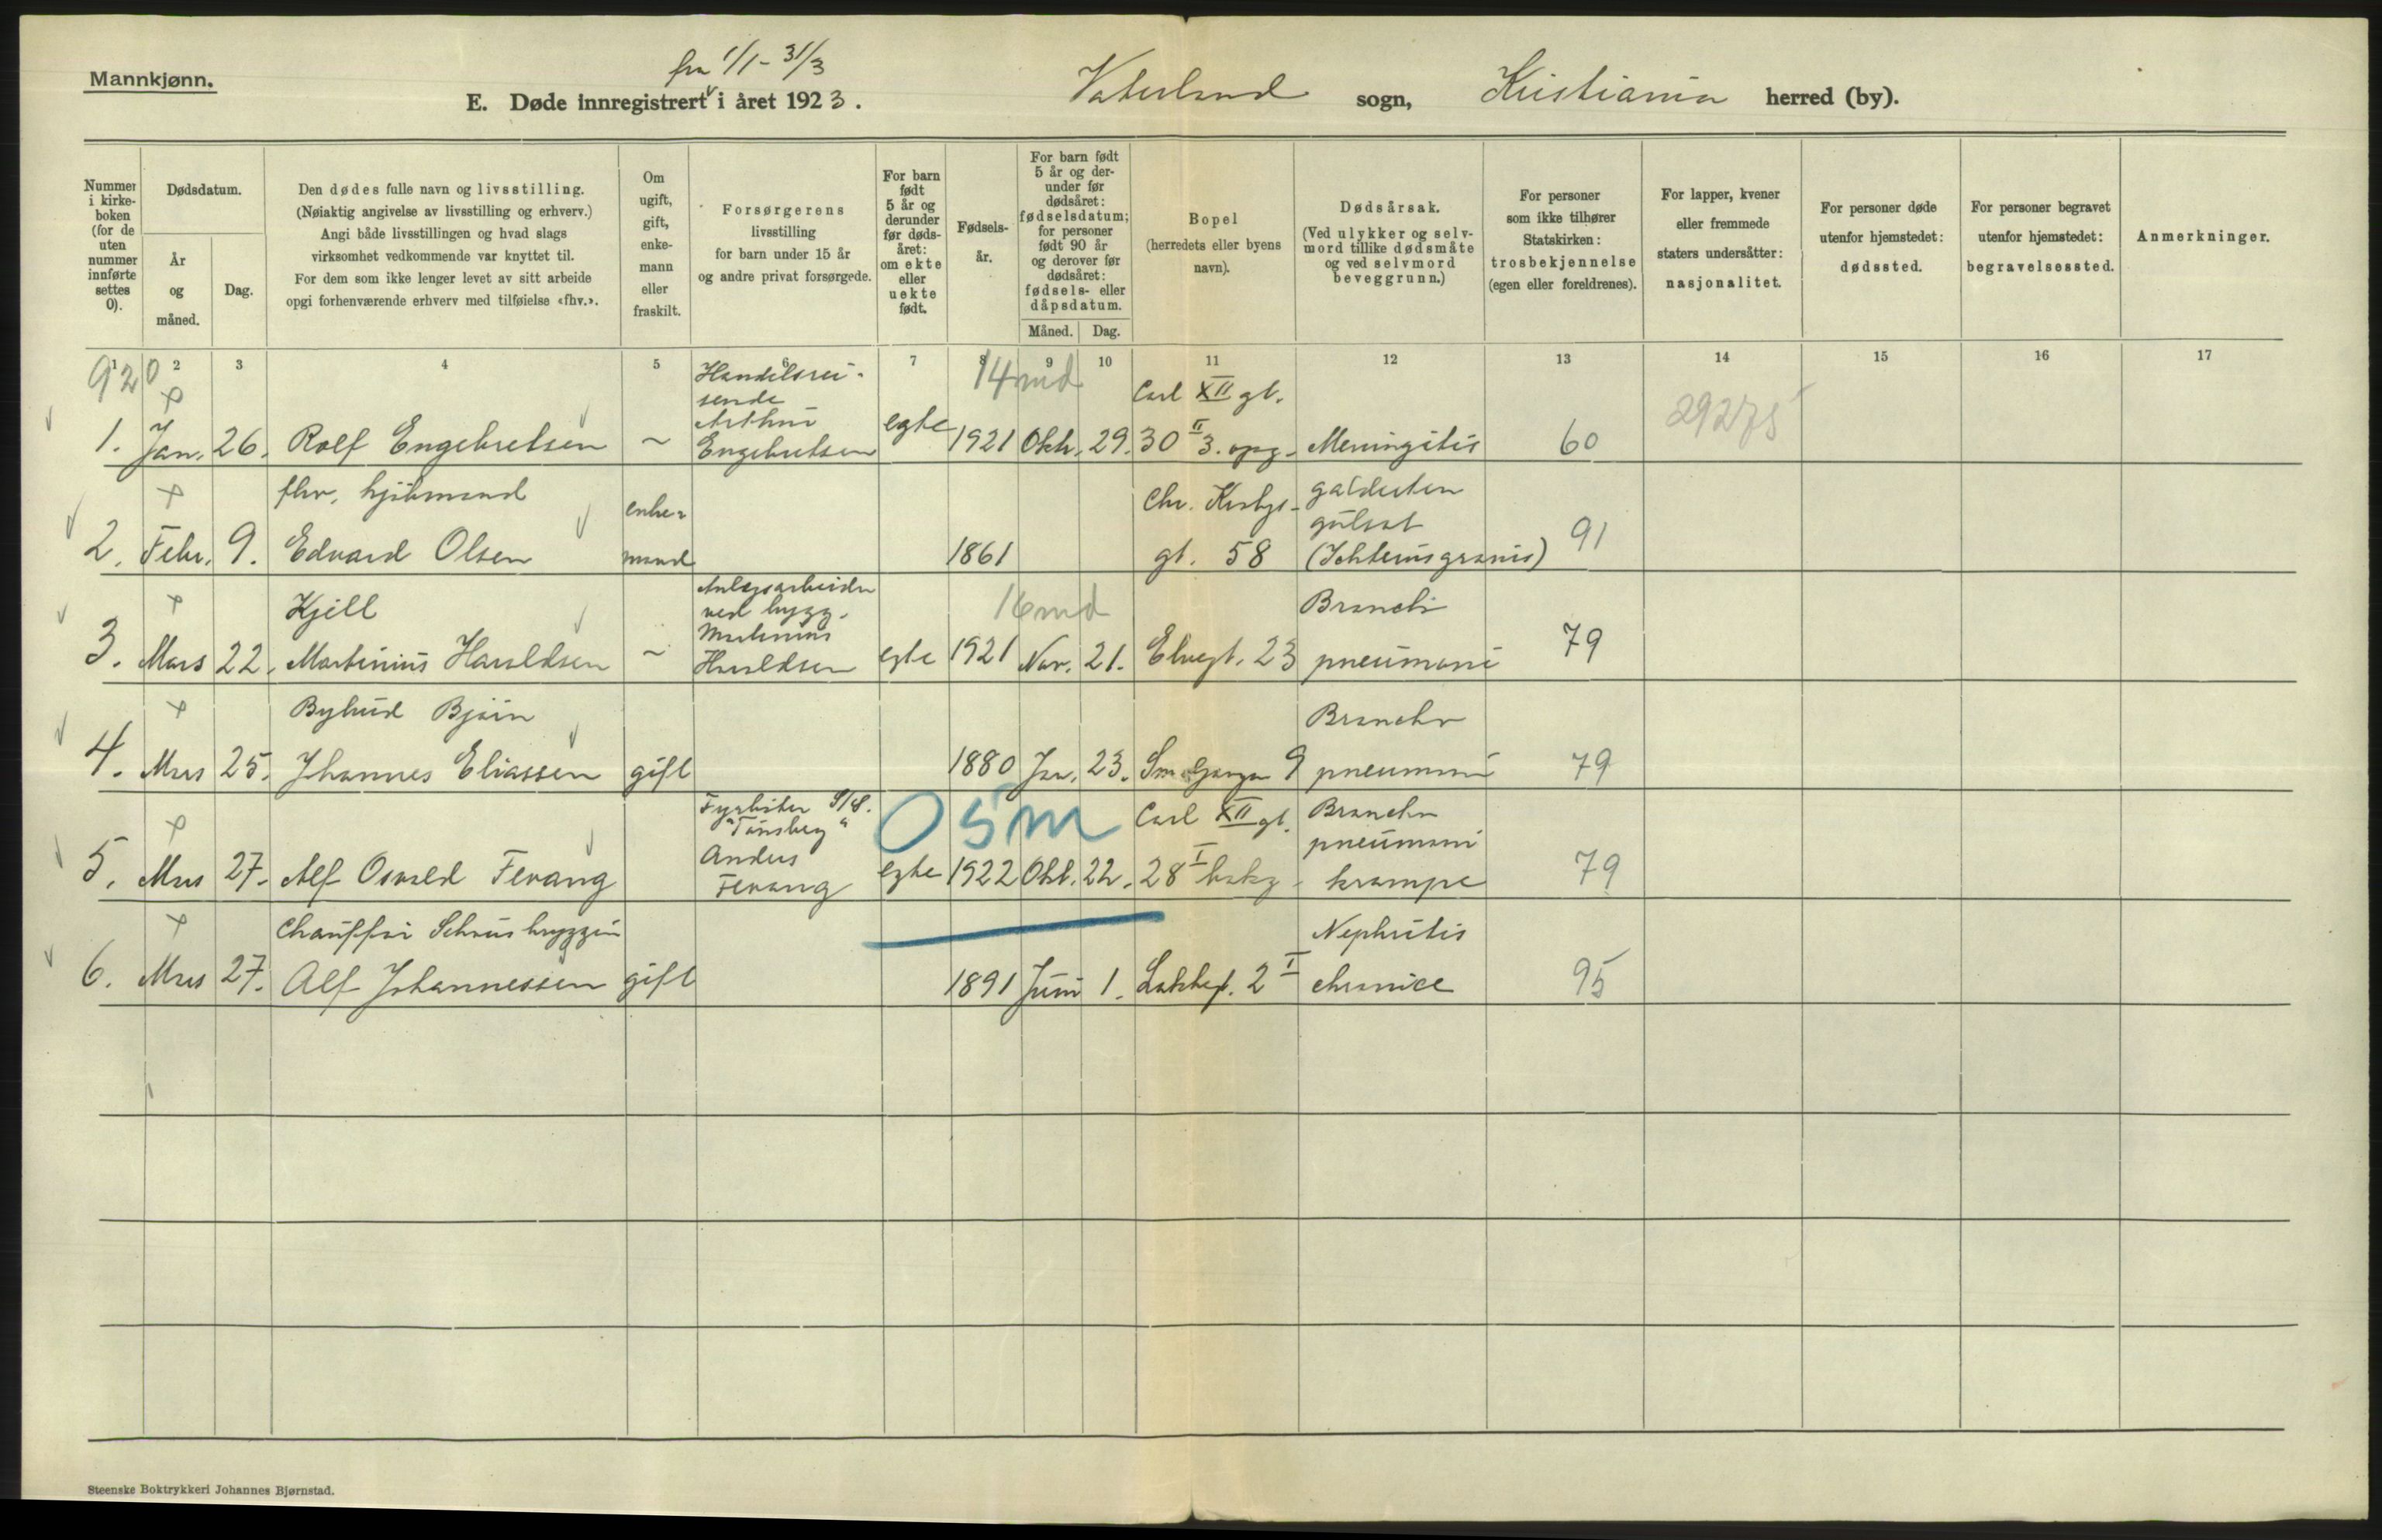 Mannkjønn.
fra 1/1 - 31/3
E. Døde innregistrert i året 1923.
Vaterland sogn, Kristiania herred (by).
Nummer i kirke-boken (for de uten nummer innførte settes 0).
Dødsdatum.
År og måned.
Dag.
Den dødes fulle navn og livsstilling.
(Nøiaktig angivelse av livsstilling og erhverv.)
Angi både livsstillingen og hvad slags
virksomhet vedkommende var knyttet til.
For dem som ikke lenger levet av sitt arbeide
opgi forhenværende erhverv med tilføielse «fhv.».
Om ugift, gift, enke-mann eller fraskilt.
Forsørgerens
livsstilling
for barn under 15 år
og andre privat forsørgede.
For barn født 5 år og derunder før døds-året: om ekte eller uekte født.
Fødsels-år.
For barn født 5 år og der-under før dødsåret: fødselsdatum; for personer født 90 år og derover før dødsåret: fødsels- eller dåpsdatum.
Måned. Dag.
Bopel
(herredets eller byens
navn).
Dødsårsak.
(Ved ulykker og selv-
mord tillike dødsmåte
og ved selvmord
beveggrunn.)
For personer
som ikke tilhører
Statskirken:
trosbekjennelse
(egen eller foreldrenes).
For lapper, kvener
eller fremmede
staters undersåtter:
nasjonalitet.
For personer døde
utenfor hjemstedet:
dødssted.
For personer begravet
utenfor hjemstedet:
begravelsessted.
Anmerkninger.
1 2 3 4 5 6 7 8 9 10 11 12 13 14 15 16 17
920
Handelsrei-
sende
14 md
Carl XII gt.
29275
Arthur
1. Jan. 26. Rolf Engebretsen ~ Engebretsen egte 1921 Okt. 29. 30 II 3. opg. Meningitis 60
fhv. hjulmand enke- Chr. Krohgs- galdesten
gulsot
2. Febr. 9. Edvard Olsen mand 1861 gt. 58 (Ichterus gravis) 91
Anlegsarbeider
ved bygg.
Kjell Martinius 16 md Bronchi
3. Mars 22. Martinius Haraldsen ~ Haraldsen egte 1921 Nov. 21. Elvegt. 23 pneumoni 79
Bybud Bjørn Broncho
4. Mars 25. Johannes Eliassen gift 1880 Jan. 23. Smalgangen 9 pneumoni 79
Fyrbøter S/S.
"Tønsberg"
0 5m
Carl XII gt. Broncho
pneumoni
Anders
5. Mars 27. Alf Osvald Fevang Fevang egte 1922 Okt. 22. 28 I bakg. krampe 79
Chauffør Schous bryggeri Nephritis
6. Mars 27. Alf Johannessen gift 1891 Juni 1. Lakkeg. 2 I chronica 95
Steenske Boktrykkeri Johannes Bjørnstad.